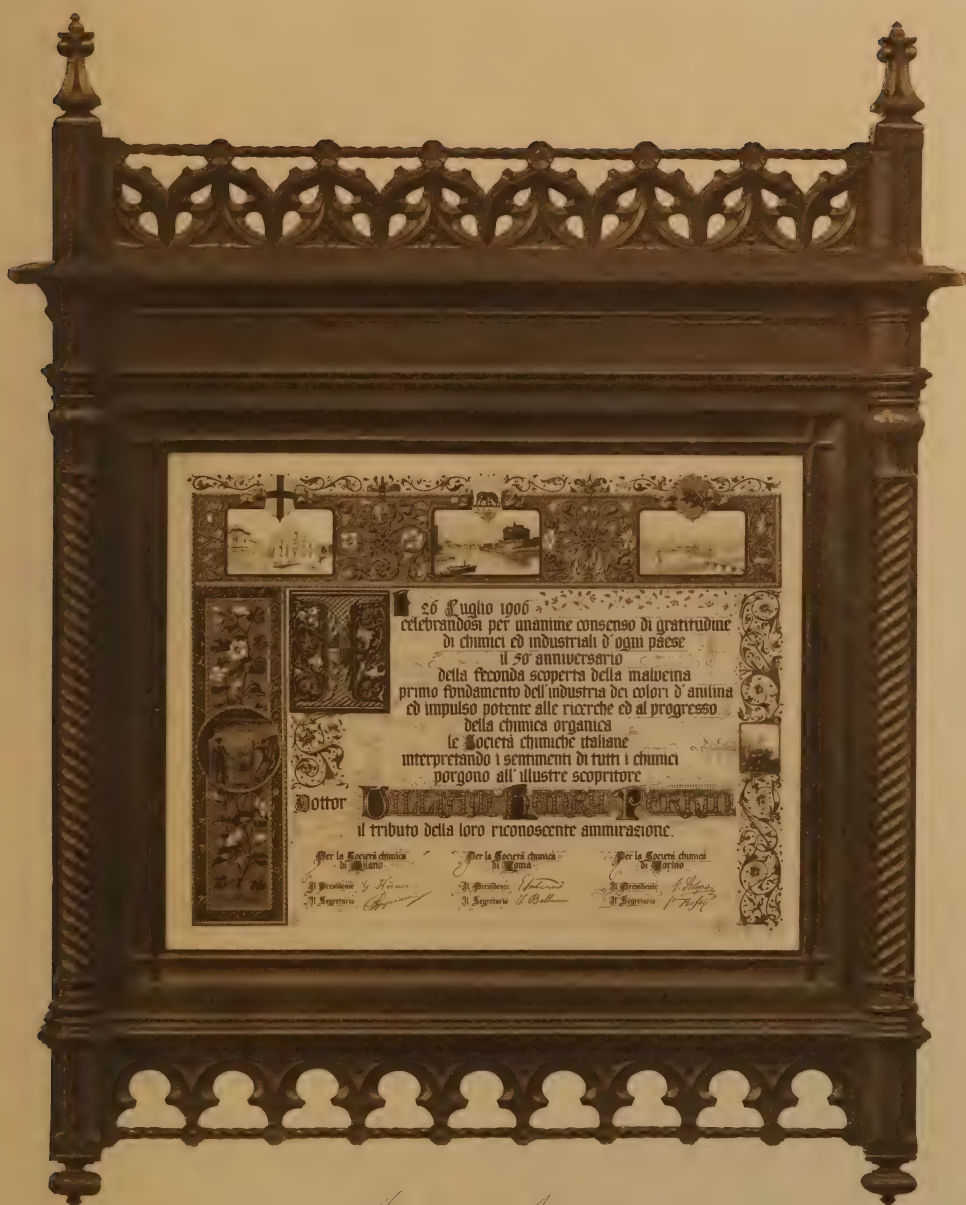 Il 26 Luglio 1906
celebrandosi per unanime consenso di gratitudine
di chimici ed industriali d'ogni paese
il 50° anniversario
della feconda scoperta della malveina
primo fondamento dell'industria dei colori d'anilina
ed impulso potente alle ricerche ed al progresso
della chimica organica
le Società chimiche italiane
interpretando i sentimenti di tutti i chimici
porgono all'illustre scopritore
Dottor William Henry Perkin
il tributo della loro riconoscente ammirazione.
Per la Società chimica di Milano
Il Presidente G Körner
Il Segretario
Per la Società chimica di Roma
Il Presidente E Paternò
Il Segretario
Per la Società chimica di Torino
Il Presidente
Il Segretario